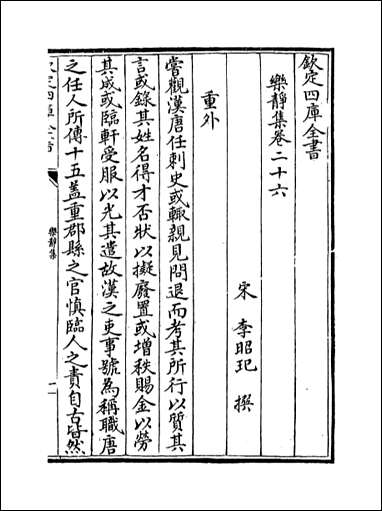 欽定四庫全書
樂靜集卷二十六
宋 李昭玘 撰
重外
嘗觀漢唐任刺史或輙親見問退而考其所行以質其
言或錄其姓名得才否狀以擬廢置或增秩賜金以勞
其成或臨軒受服以光其遣故漢之吏事號為稱職唐
之任人所傳十五蓋重郡縣之官慎臨人之責自古皆然
樂靜集